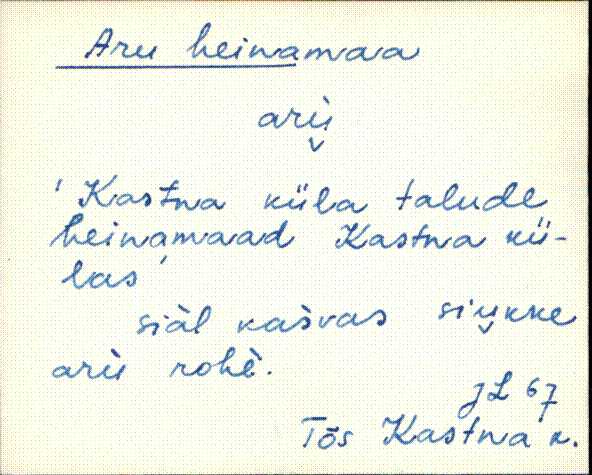 Aru heinamaa
arù
'Kastna küla talude
heinamaad Kastna kü-
las'
siàl kàsvas siukke
arù rohè.
JL 67
Tõs Kastna k.